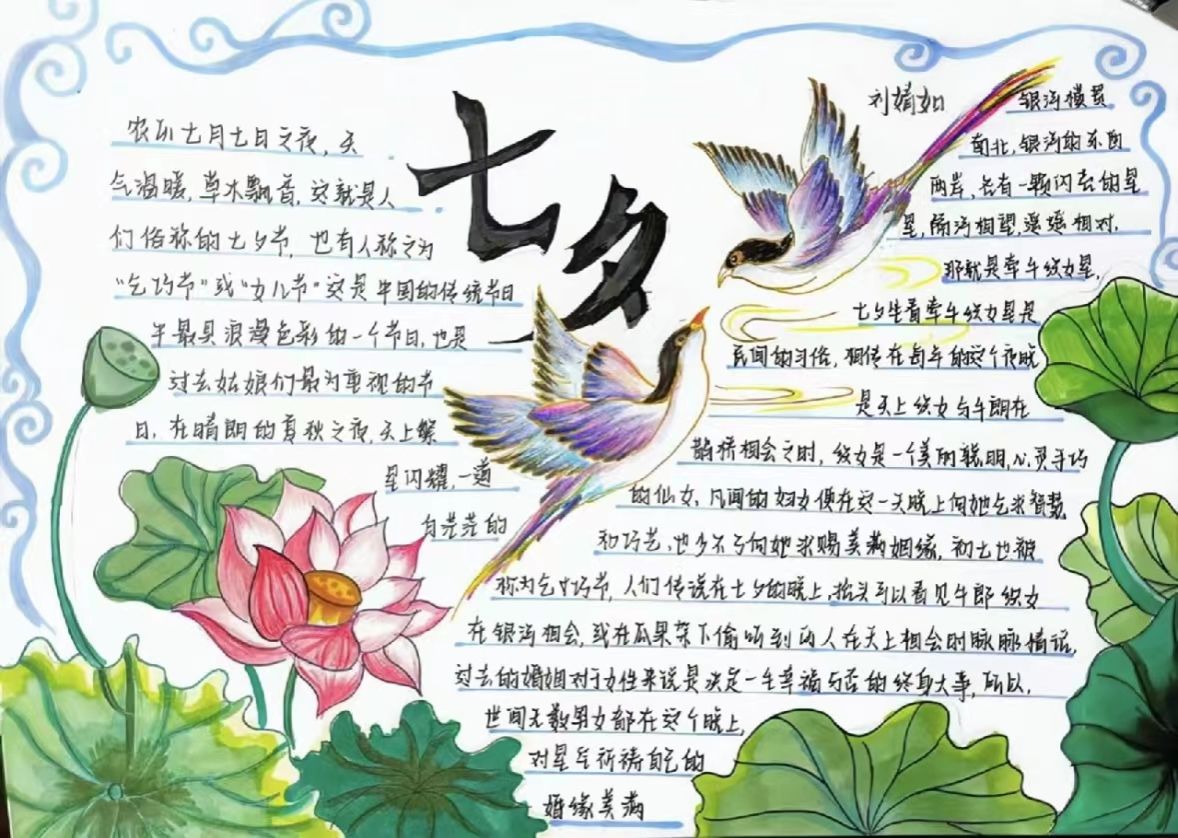 七夕
农历七月七日之夜，天
气温暖，草木飘香，这就是人
们俗称的七夕节，也有人称之为
“乞巧节”或“女儿节”这是中国的传统节日
中最具浪漫色彩的一个节日，也是
过去姑娘们最为重视的节
日，在晴朗的夏秋之夜，天上繁
星闪耀，一道
白茫茫的
刘婧如
银河横贯
南北，银河的东西
两岸，各有一颗闪亮的星
星，隔河相望，遥遥相对，
那就是牵牛织女星，
七夕坐看牵牛织女星是
民间的习俗，相传在每年的这个夜晚
是天上织女与牛朗在
鹊桥相会之时，织女是一个美丽聪明，心灵手巧
的仙女，凡间的妇女便在这一天晚上向她乞求智慧
和巧艺，也少不了向她求赐美满姻缘，初七也被
称为乞巧节，人们传说在七夕的晚上，抬头可以看见牛郎织女
在银河相会，或在瓜果架下偷听到两人在天上相会时脉脉情话，
过去的婚姻对于女性来说是决定一生幸福与否的终身大事，所以，
世间无数男女都在这个晚上，
对星车祈祷自己的
婚缘美满